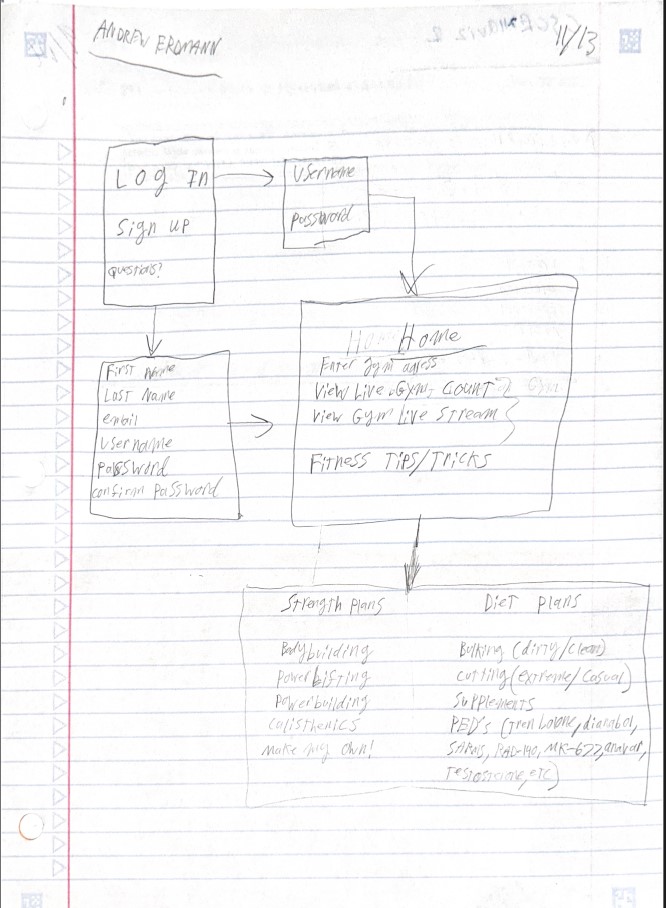 ANDREW ERDMANN
11/13
LOG In
Sign up
questions?
Username
password
First Name
Last Name
email
Username
password
confirm password
Home
Enter gym
View Live Gym Count
View Gym Live Stream
Fitness Tips/Tricks
Strength plans
Bodybuilding
Powerlifting
Powerbuilding
Calisthenics
Make my own!
Diet plans
Bulking (dirty/clean)
cutting (extreme/casual)
Supplements
PED's (trenbolone, dianabol,
SARMS, RAD-140, MK-622, anavar,
Testosterone, etc)